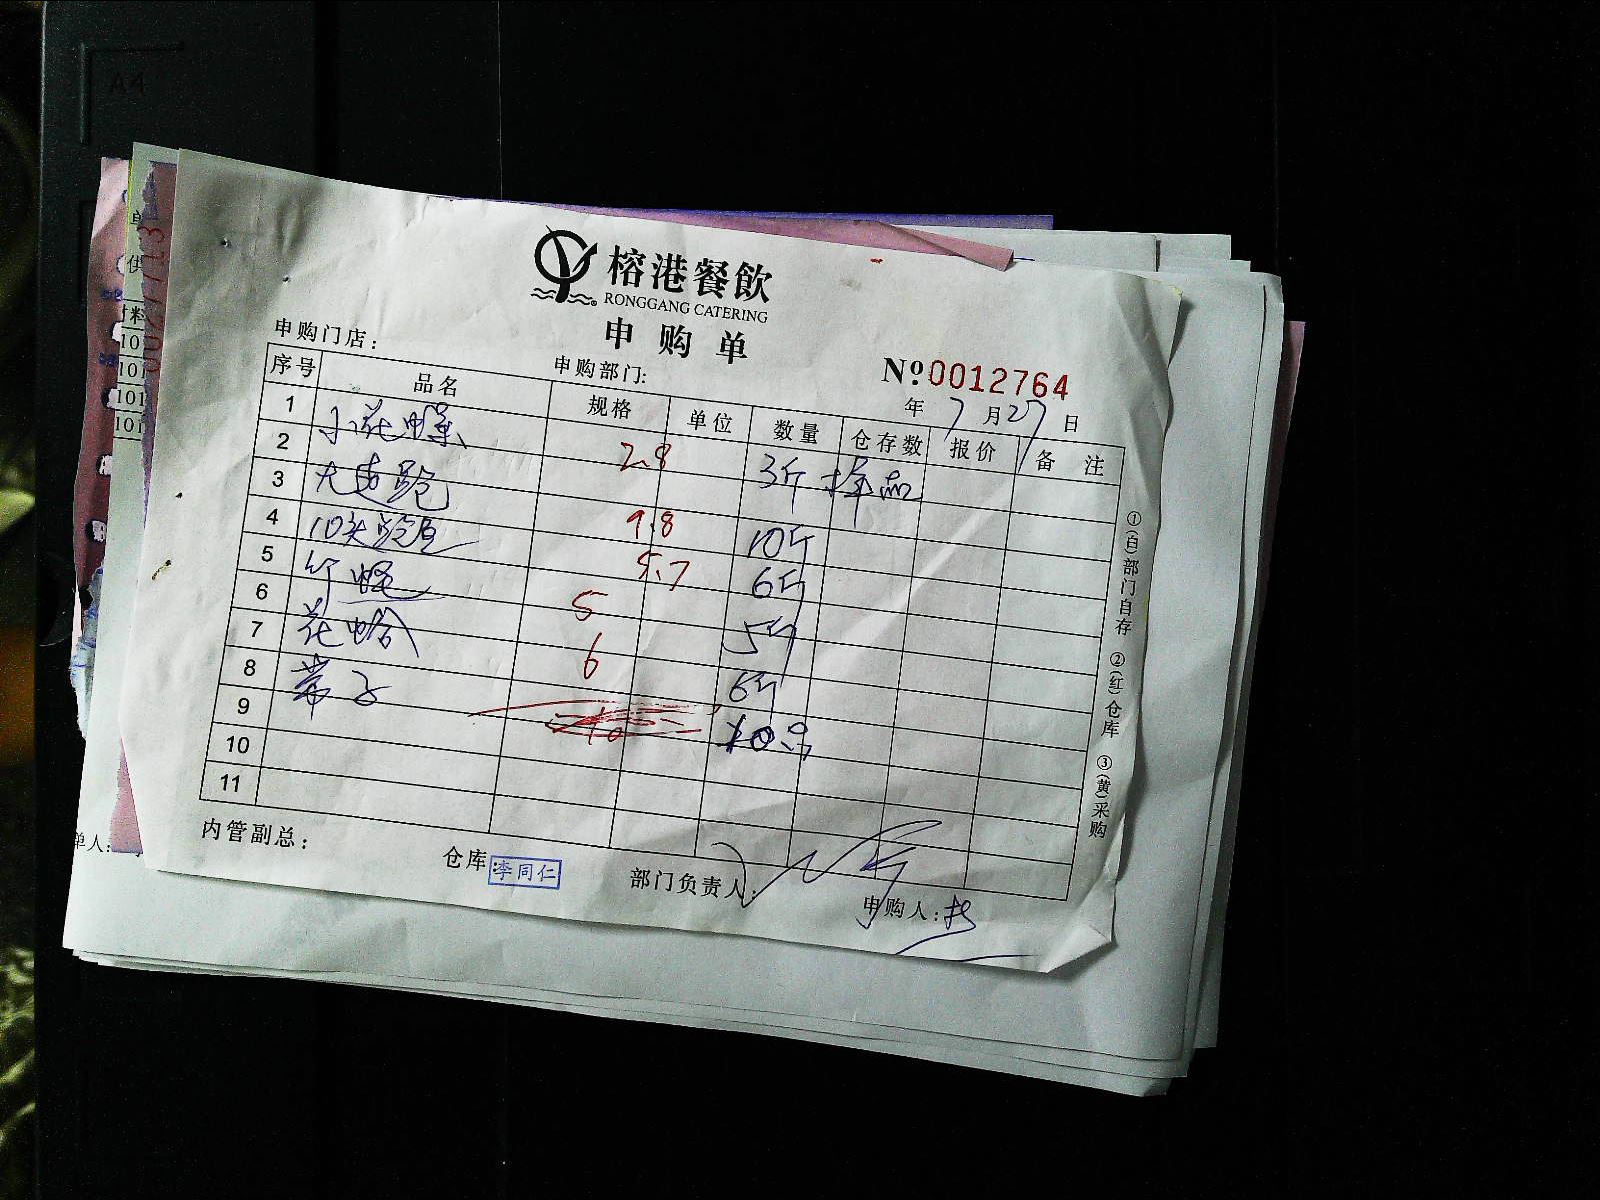 A4
榕港餐飲
RONGGANG CATERING
申购单
申购门店：
申购部门:
№0012764
年 7 月 27 日
序号 品名 规格 单位 数量 仓存数 报价 备注
1 小花螺 2.8 3斤 样品
2
3 大连鲍 9.8 10斤
4 10头鲍鱼 5.7 6斤
5 竹蛏 5 5斤
6 花蛤 6 6斤
7
8 带子 10 10只
9
10
11
内管副总：
仓库: 李同仁
部门负责人:
申购人:
①(白)部门自存 ②(红)仓库 ③(黄)采购
单
供
料
101
101
101
101
单人: